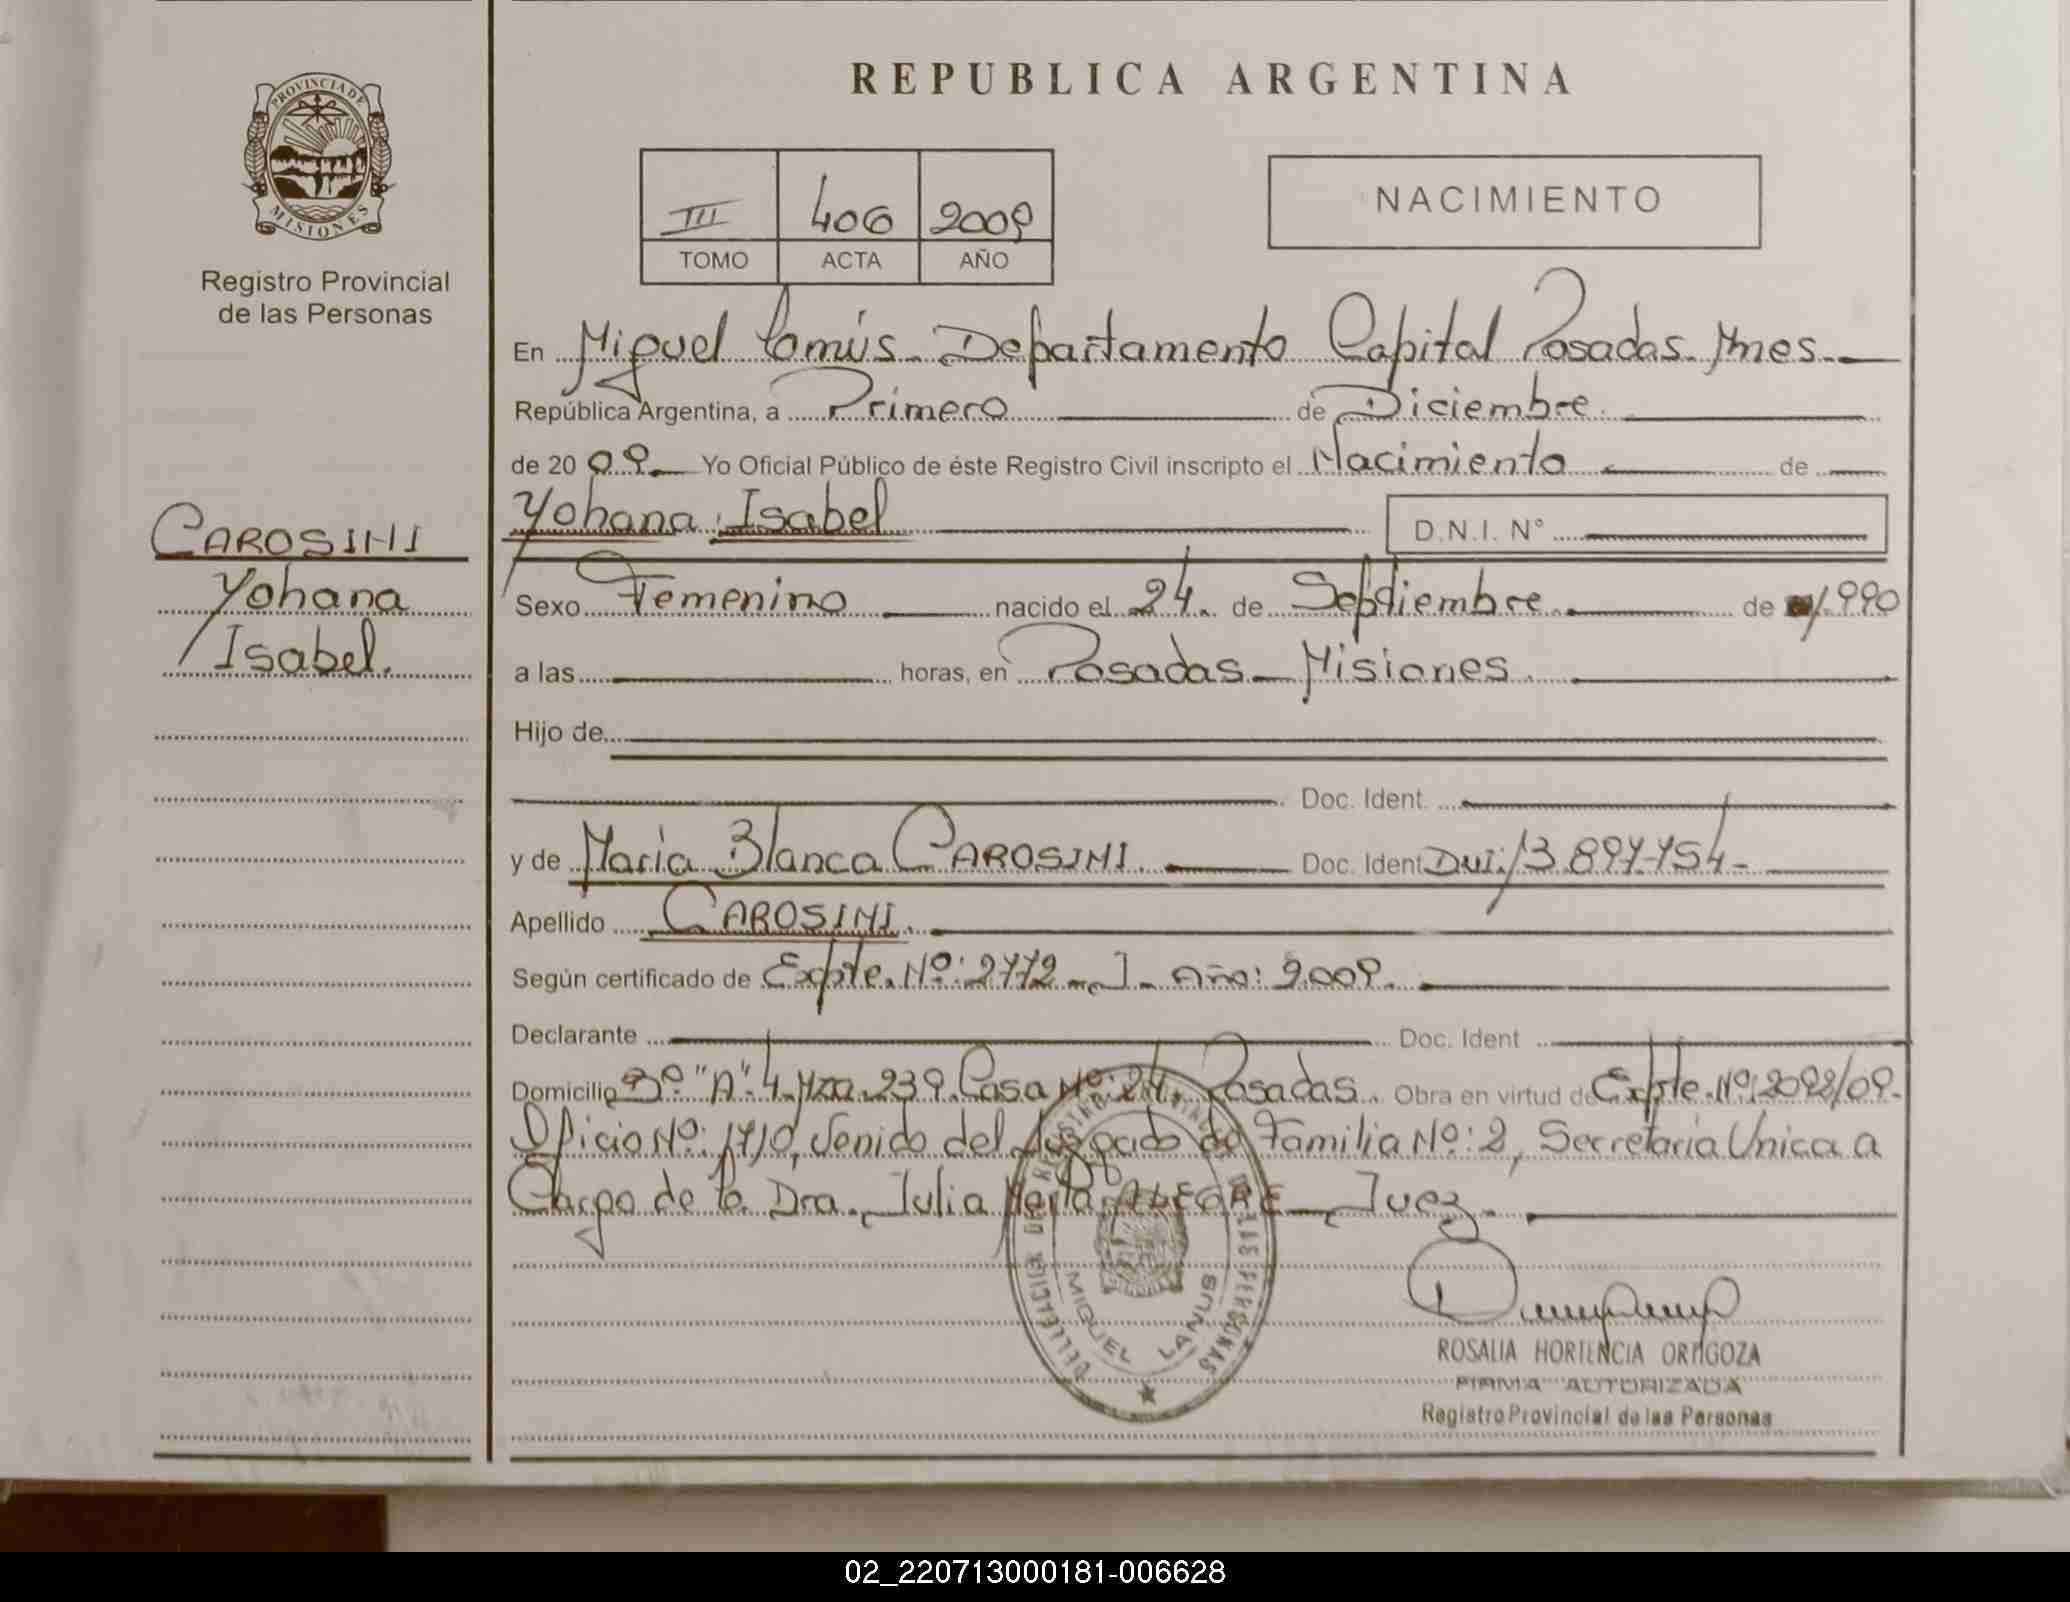 REPUBLICA ARGENTINA
PROVINCIA DE
MISIONES
Registro Provincial
de las Personas
III 406 2009
TOMO ACTA AÑO
NACIMIENTO
En Miguel Lanús. Departamento Capital Posadas. Mnes.
República Argentina, a Primero de Diciembre.
de 20 09. Yo Oficial Público de éste Registro Civil inscripto el Nacimiento de
Yohana Isabel D.N.I. N°
CAROSINI
Yohana
Isabel.
Sexo Femenino nacido el 24. de Septiembre. de 1.990
a las horas, en Posadas Misiones.
Hijo de
Doc. Ident.
y de María Blanca CAROSINI. Doc. Ident DNI. 13.897.754
Apellido CAROSINI.
Según certificado de Expte. Nº: 2772 - J - Año: 2.009.
Declarante Doc. Ident
Domicilio Bº "A" 4. Mza. 239. Casa Nº: 24. Posadas. Obra en virtud de Expte. Nº: 2092/09.
Oficio Nº: 1710, Venido del Juzgado de Familia Nº: 2, Secretaría Unica a
Cargo de la Dra. Julia ALEGRE Juez.
MIGUEL LANUS
ROSALIA HORTENCIA ORTIGOZA
FIRMA AUTORIZADA
Registro Provincial de las Personas
02_220713000181-006628